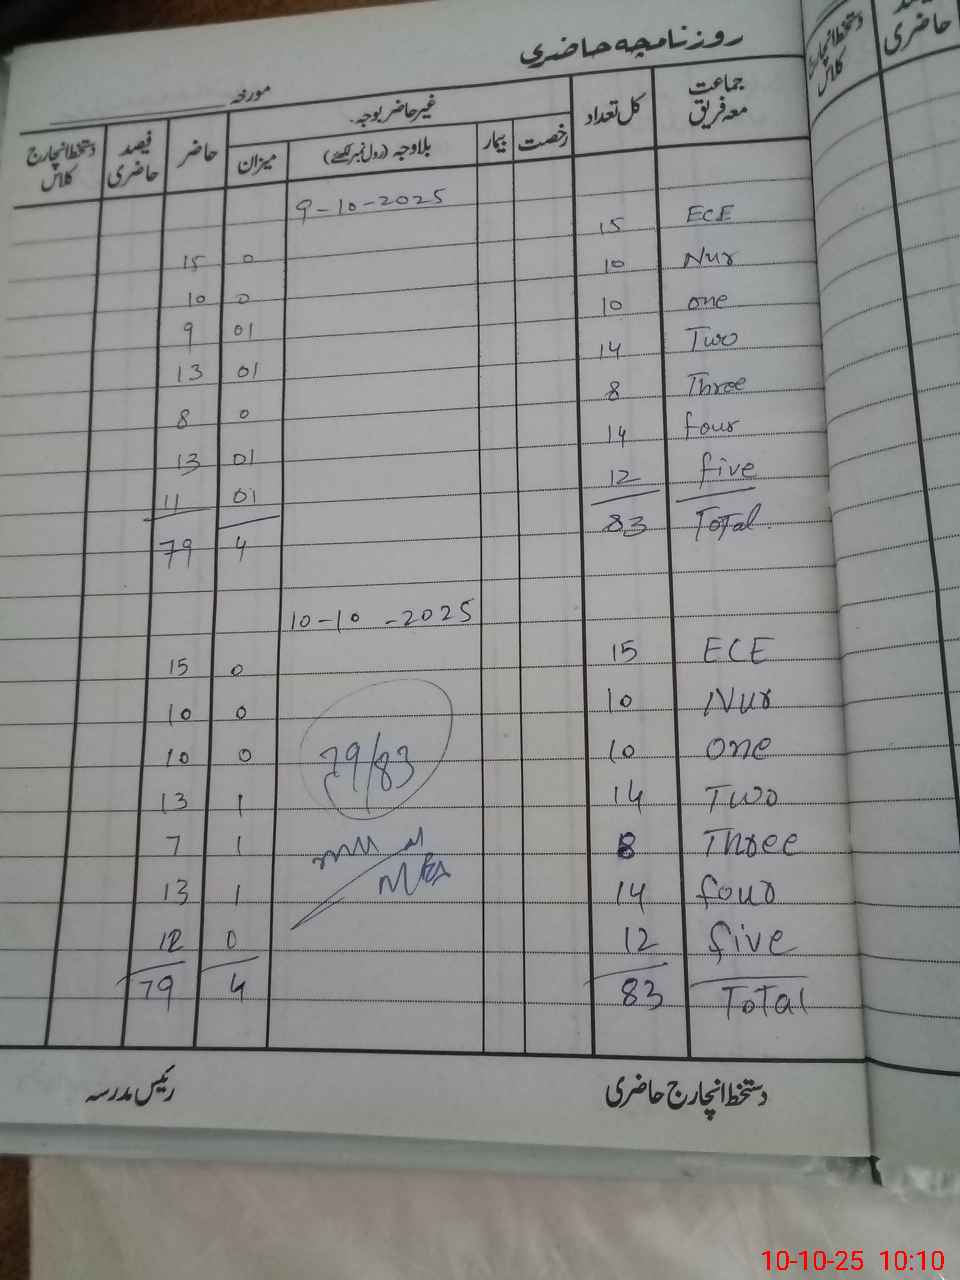 روزنامچہ حاضری
مورخہ
جماعت معہ فریق کل تعداد غیر حاضر بوجہ حاضر فیصد حاضری دستخط انچارج کلاس
رخصت بیمار بلاوجہ (رول نمبر لکھئے) میزان
9-10-2025
ECE 15 0 15
Nur 10 0 10
one 10 01 9
Two 14 01 13
Three 8 0 8
four 14 01 13
five 12 01 11
Total 83 4 79
10-10-2025
ECE 15 0 15
Nur 10 0 10
one 10 0 10
79/83
Two 14 1 13
Three 8 1 7
four 14 1 13
five 12 0 12
Total 83 4 79
دستخط انچارج حاضری رئیس مدرسہ
دستخط انچارج کلاس
حاضری
10-10-25 10:10